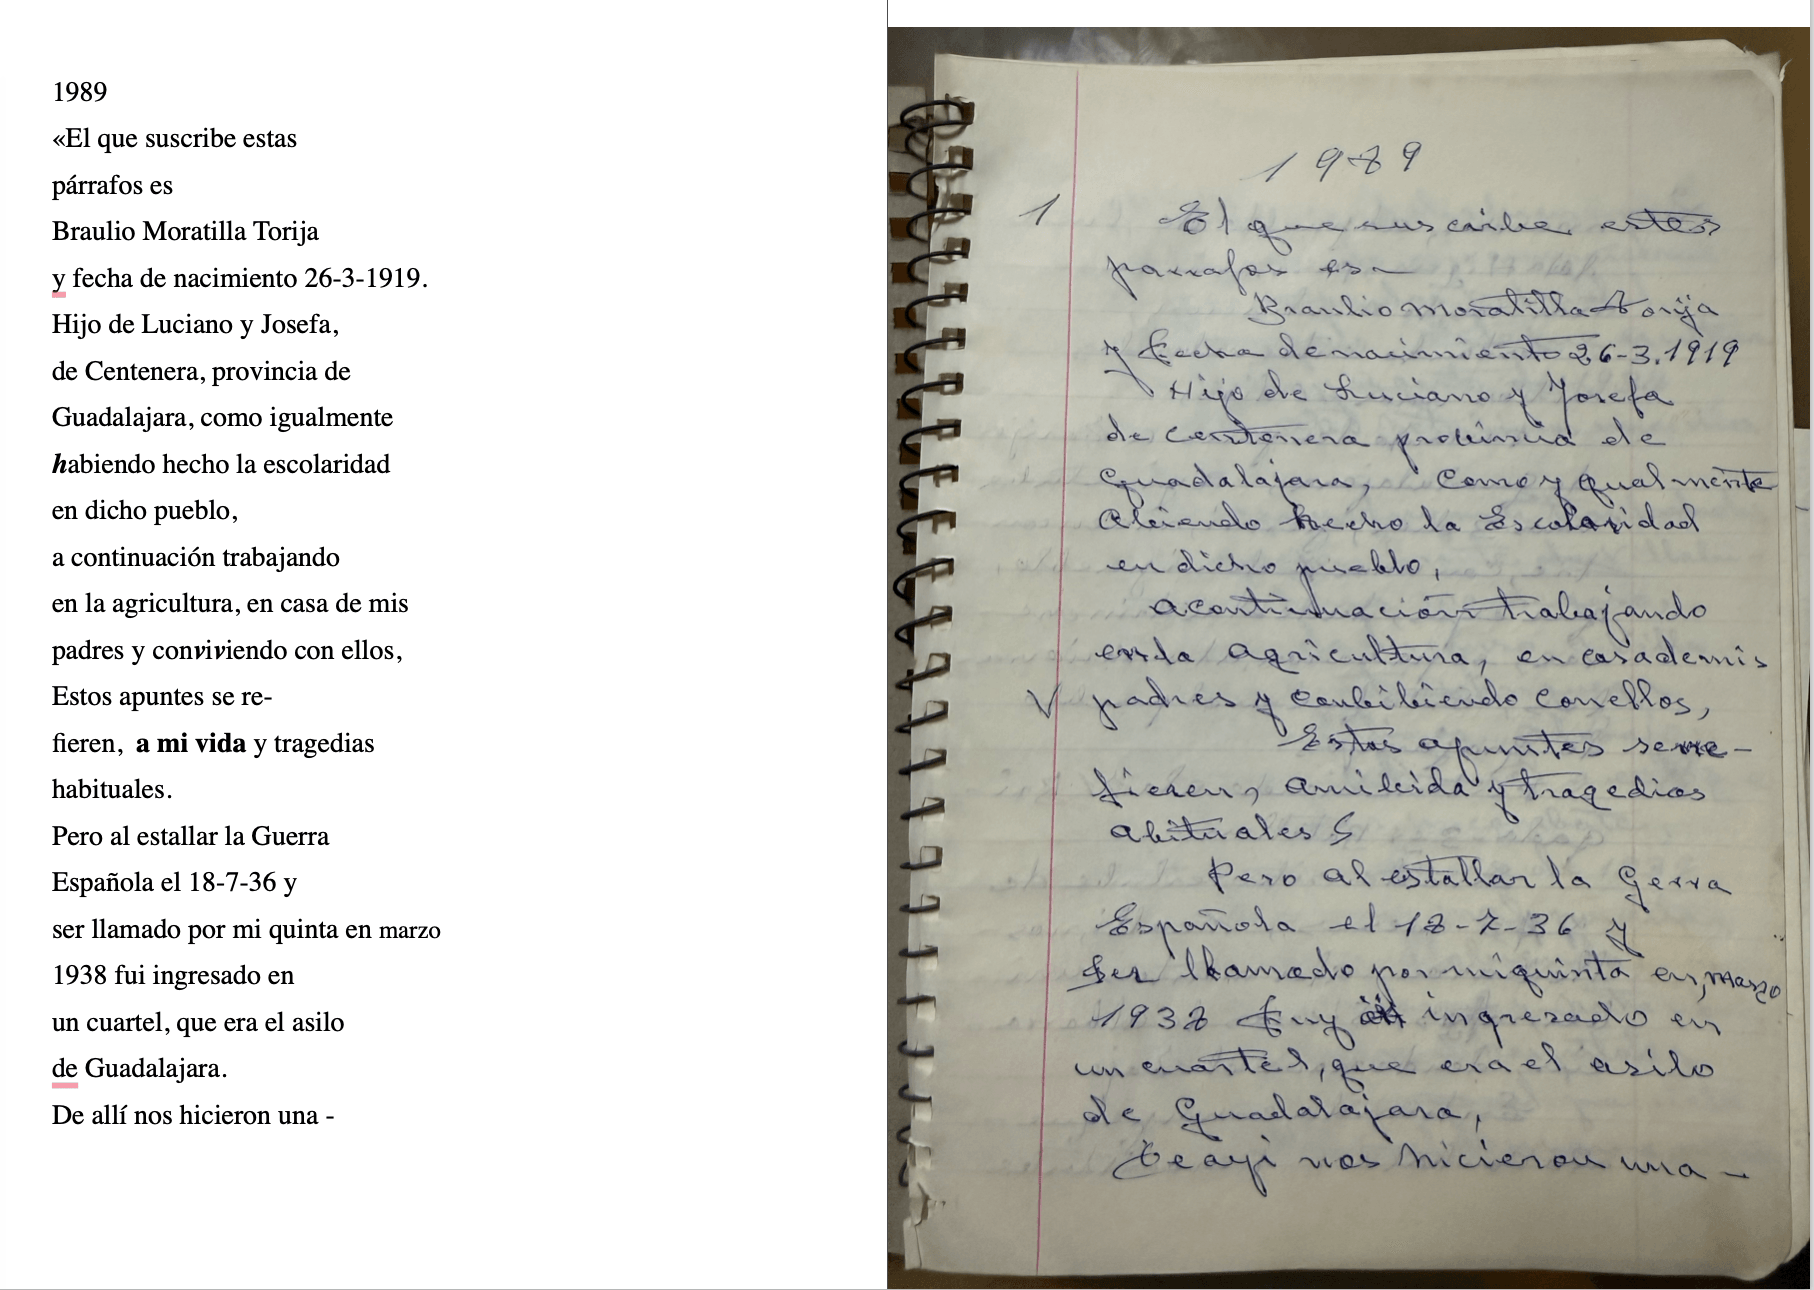 1989
«El que suscribe estas
párrafos es
Braulio Moratilla Torija
y fecha de nacimiento 26-3-1919.
Hijo de Luciano y Josefa,
de Centenera, provincia de
Guadalajara, como igualmente
habiendo hecho la escolaridad
en dicho pueblo,
a continuación trabajando
en la agricultura, en casa de mis
padres y conviviendo con ellos,
Estos apuntes se re-
fieren, a mi vida y tragedias
habituales.
Pero al estallar la Guerra
Española el 18-7-36 y
ser llamado por mi quinta en marzo
1938 fui ingresado en
un cuartel, que era el asilo
de Guadalajara.
De allí nos hicieron una -
1989
1 El que suscribe estos
parrafos es-
Braulio Moratilla Torija
y Fecha de nacimiento 26-3.1919
Hijo de Luciano y Josefa
de Centenera probincia de
Guadalajara, Como y gualmente
Abiendo hecho la Escolaridad
en dicho pueblo,
acontinuación trabajando
en la agricultura, en casademis
V padres y conbibiendo conellos,
Estos apuntes sere-
fieren, amibida y tragedias
abituales
Pero al estallar la Gerra
Española el 18-7-36 y
Ser llamado por miquinta en, marzo
1938 Fuy ingresado en
un cuartel, que era el asilo
de Guadalajara,
De ayi nos hicieron una -